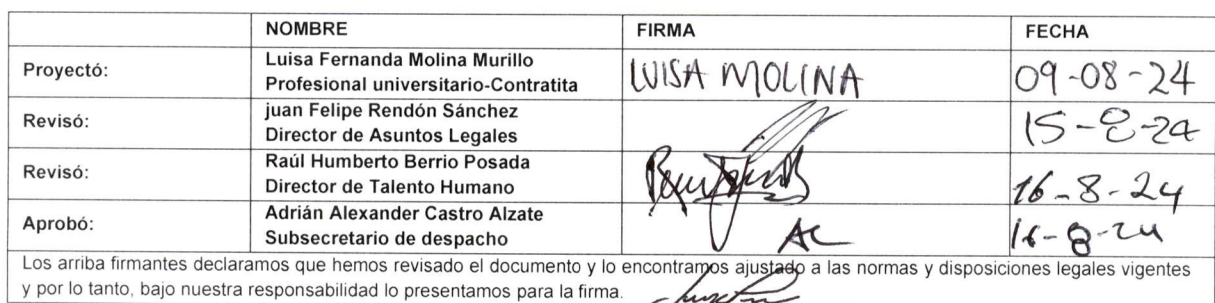 NOMBRE FIRMA FECHA
Proyectó: Luisa Fernanda Molina Murillo
Profesional universitario-Contratita LUISA MOLINA 09-08-24
Revisó: juan Felipe Rendón Sánchez
Director de Asuntos Legales 15-8-24
Revisó: Raúl Humberto Berrio Posada
Director de Talento Humano 16-8-24
Aprobó: Adrián Alexander Castro Alzate
Subsecretario de despacho AC 16-8-24
Los arriba firmantes declaramos que hemos revisado el documento y lo encontramos ajustado a las normas y disposiciones legales vigentes
y por lo tanto, bajo nuestra responsabilidad lo presentamos para la firma.